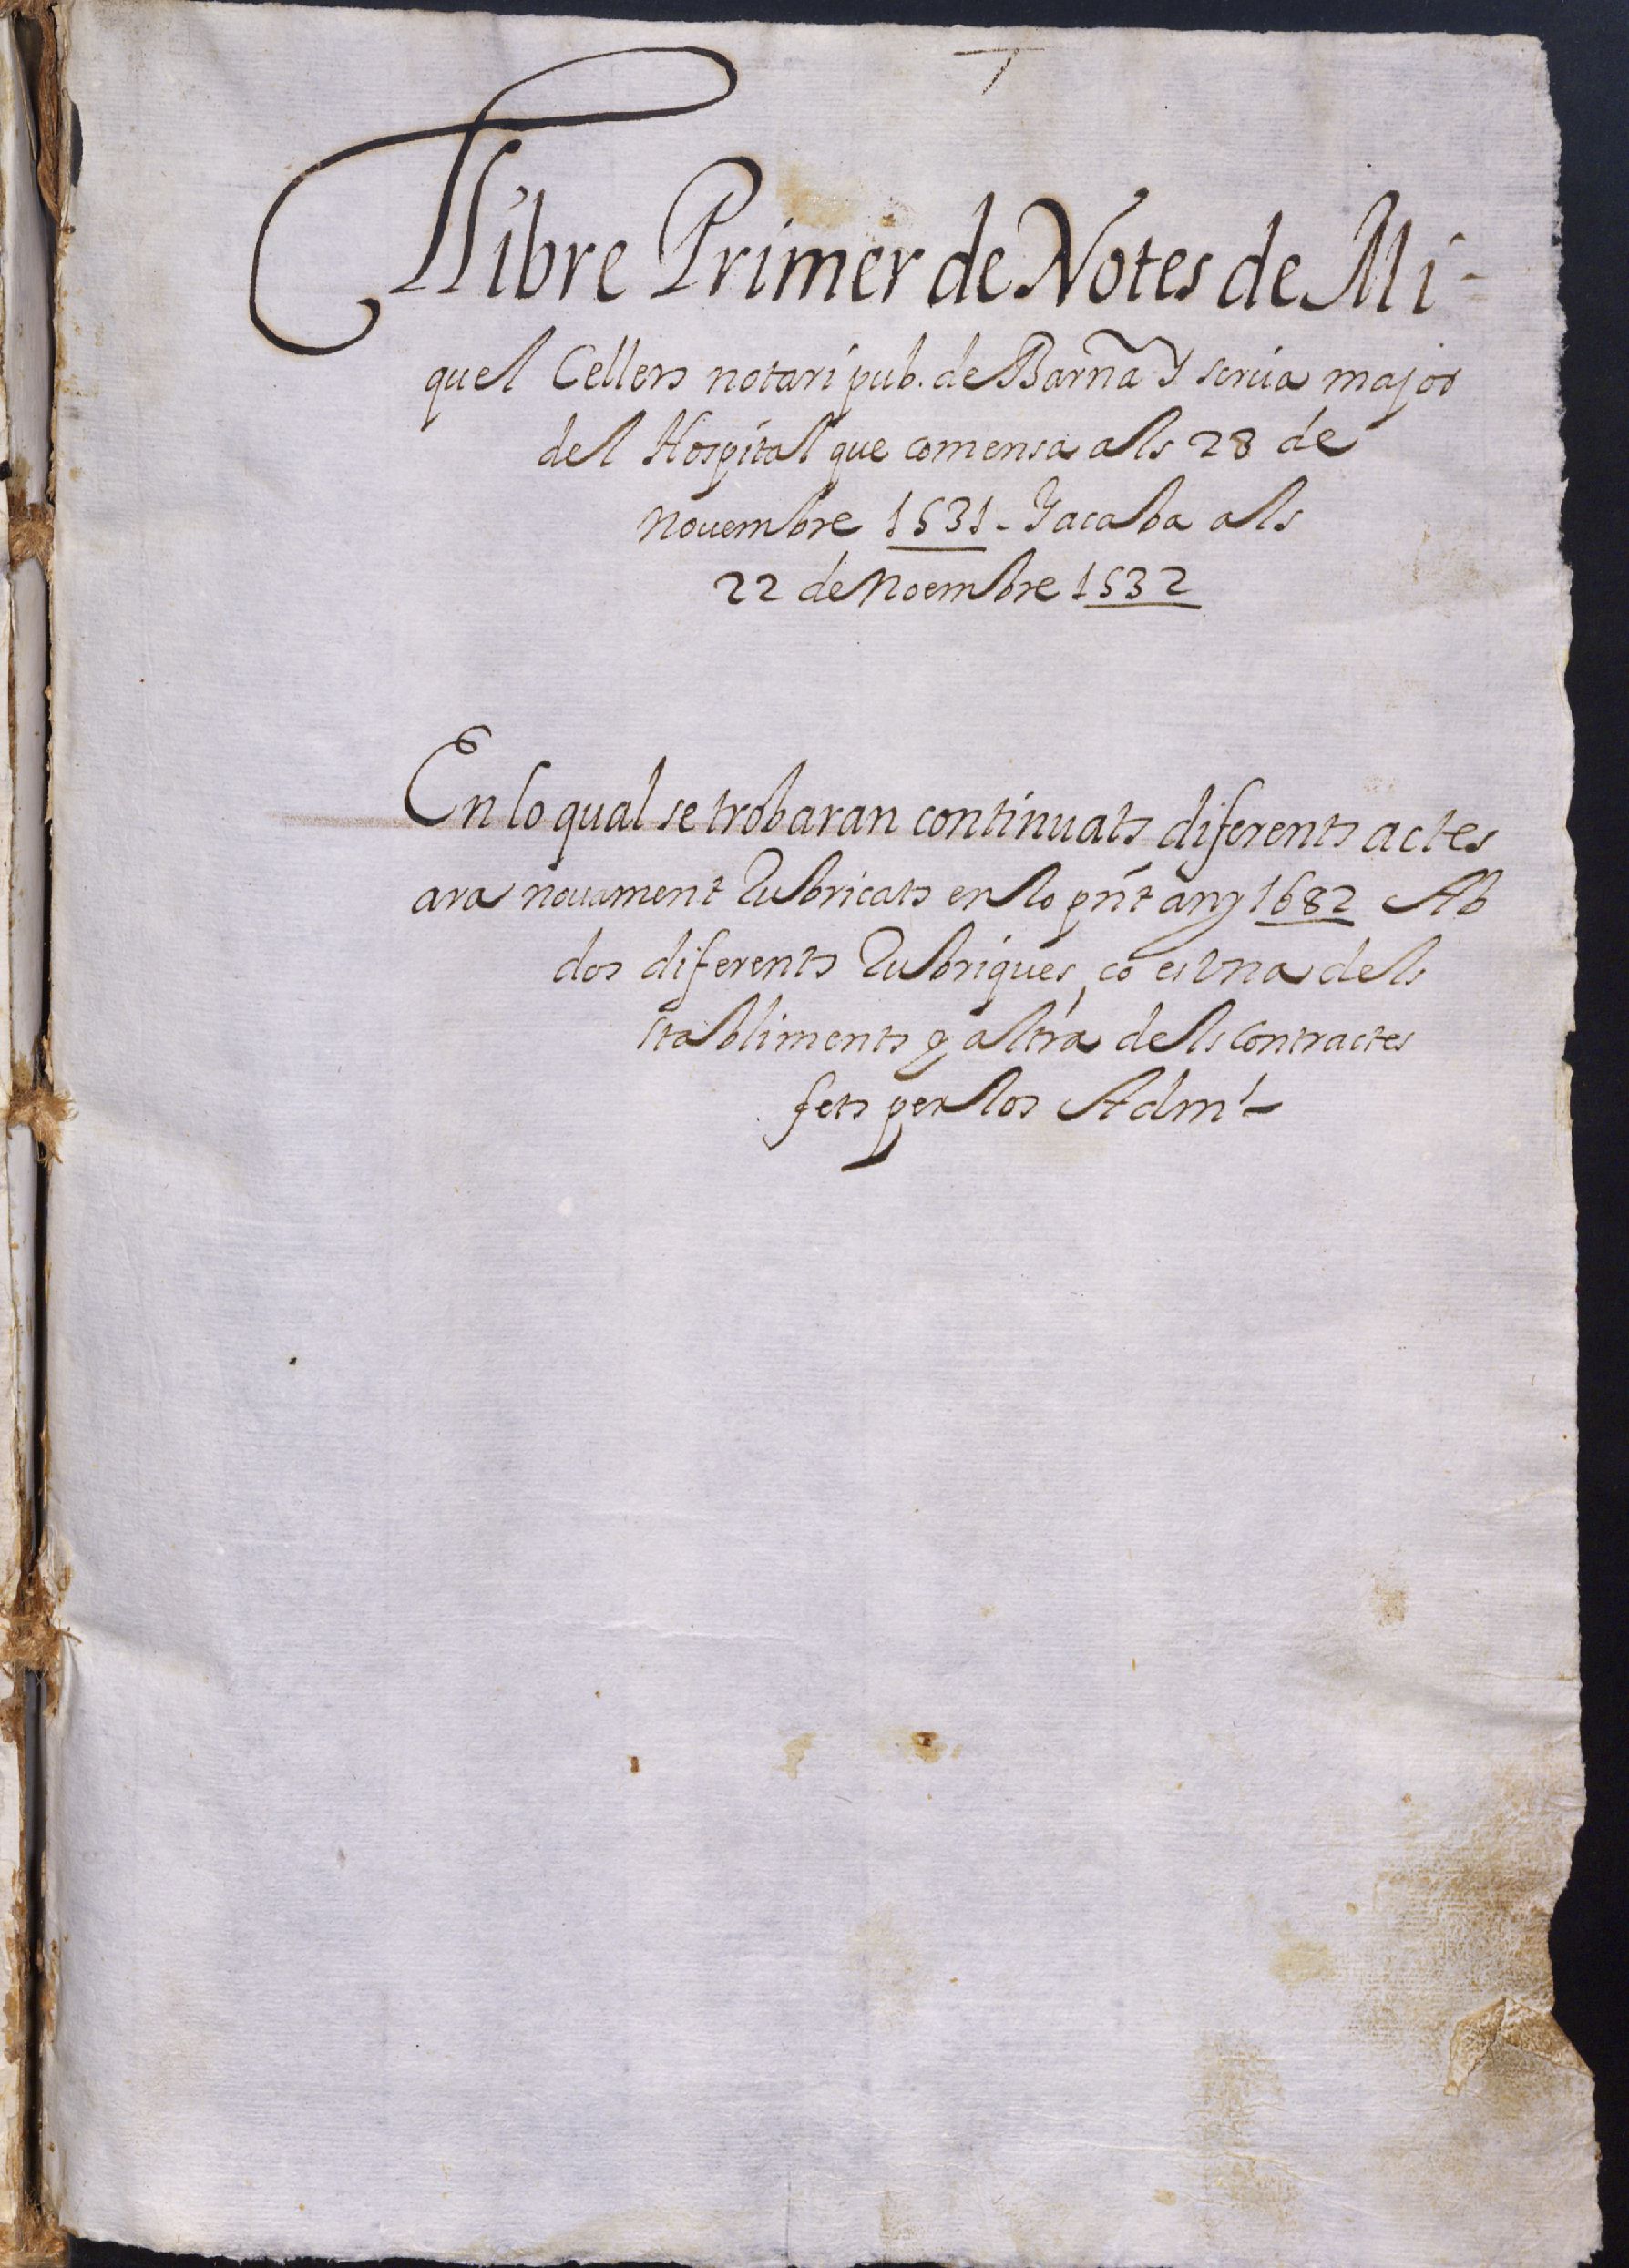 Llibre Primer de Notes de Mi-
quel Cellers notari pub. de Barña Y scriua major
del Hospital que comensa als 28 de
nouembre 1531 - Y acaba als
22 de Noembre 1532
En lo qual se trobaran continuats diferents actes
ara nouament Rubricats en lo pñt any 1682 Ab
dos diferents Rubriques, co es Vna dels
stabliments y altra dels contractes
fets per los Adm